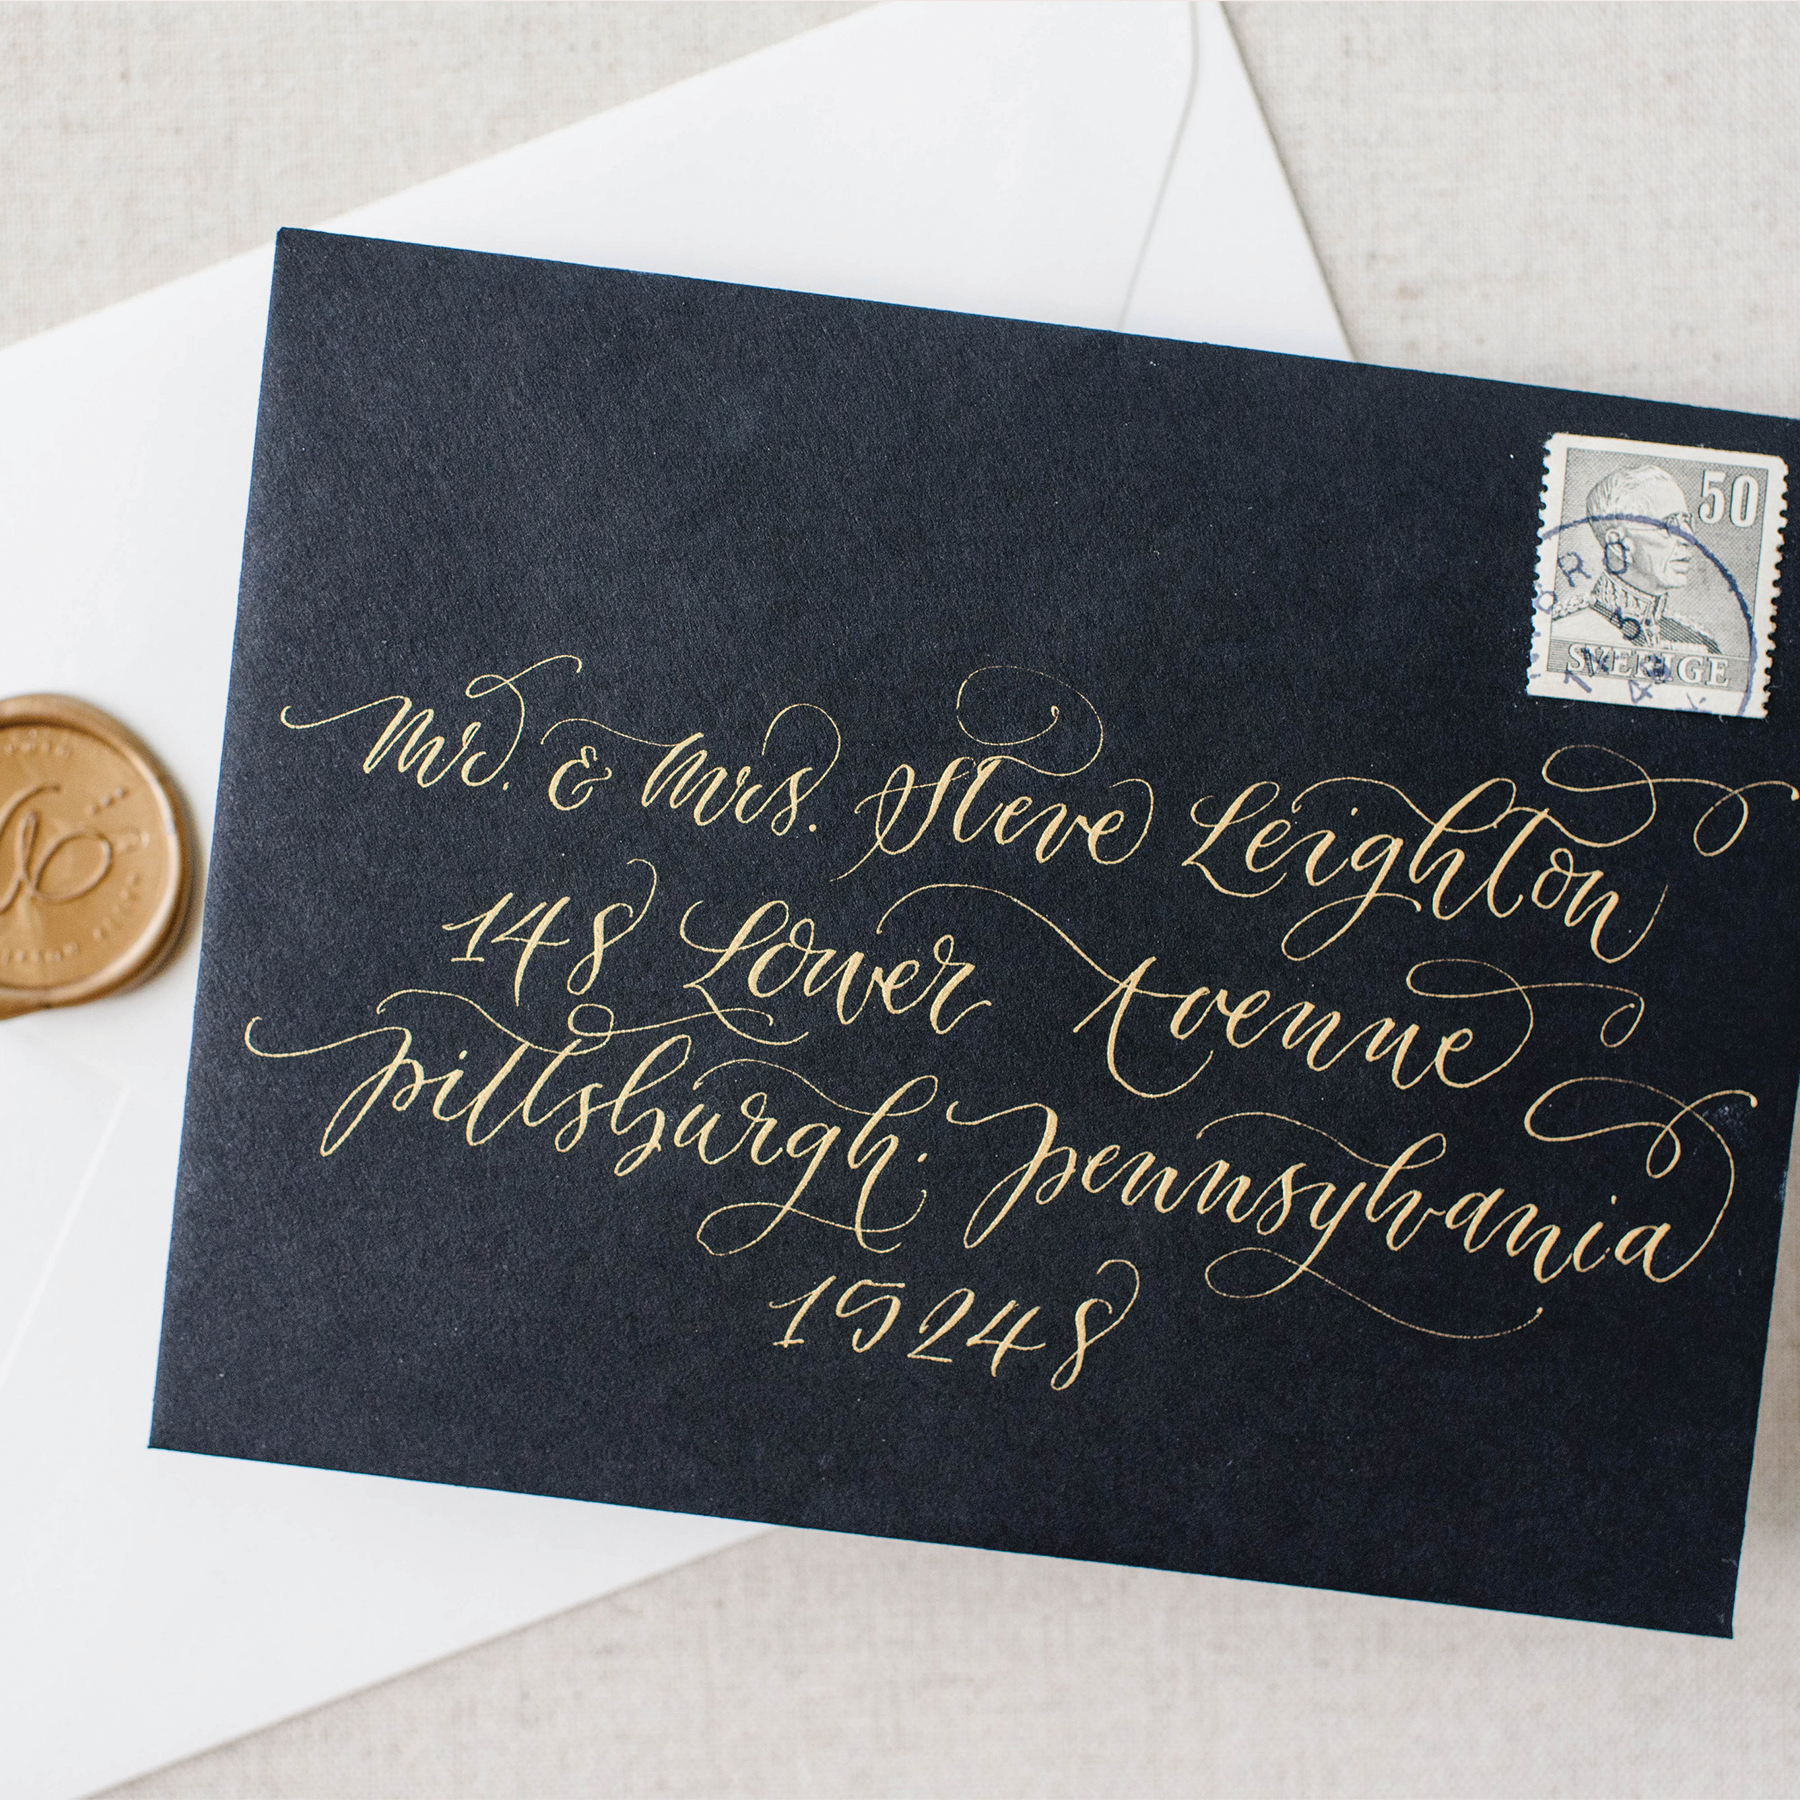 50
SVERIGE
Mr. & Mrs. Steve Leighton
148 Lower Avenue
Pittsburgh, Pennsylvania
15248